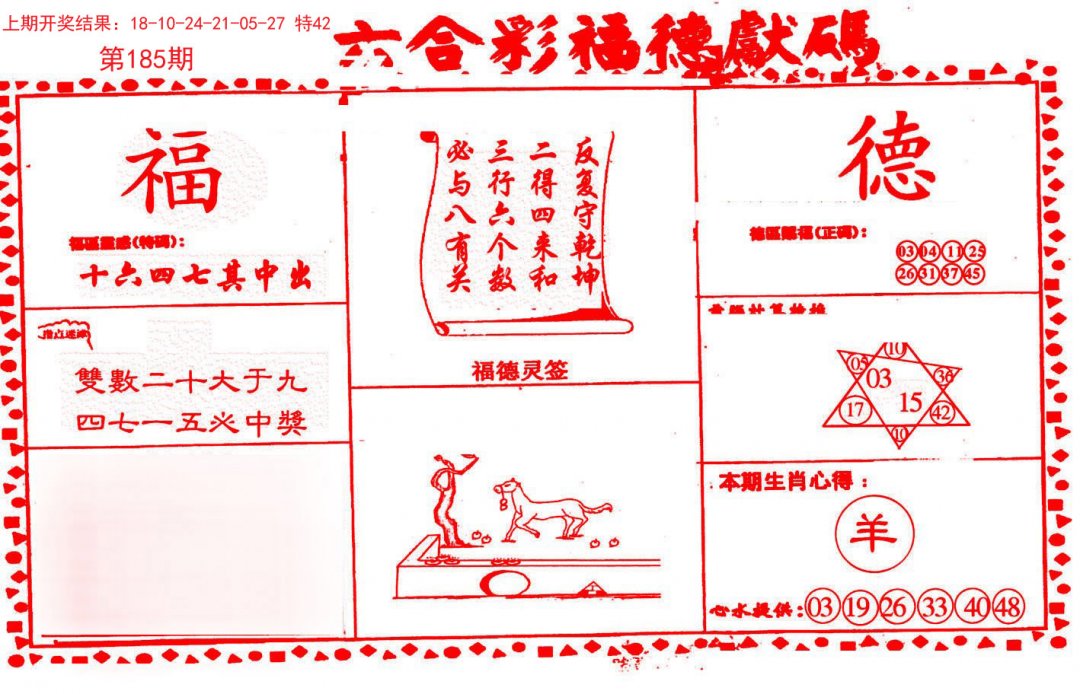 上期开奖结果：18-10-24-21-05-27 特42
第185期
六合彩福德獻碼
福
福區靈感(特碼)：
十六四七其中出
指点迷津
雙數二十大于九
四七一五必中獎
反复守乾坤
二得四来和
三行六个数
必与八有关
福德灵签
德
德區賜福(正碼)：
03 04 11 25
26 31 37 45
10
05 03 36
17 15 42
10
本期生肖心得：
羊
心水提供：03 19 26 33 40 48